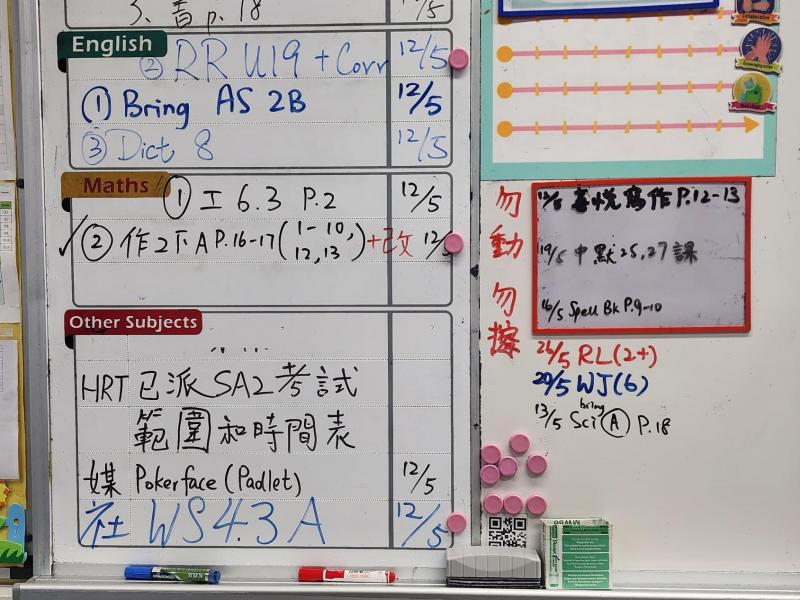 3、書 p.18 12/5
English
② RR U19 + Corr 12/5
① Bring AS 2B 12/5
③ Dict 8 12/5
Maths
① 工 6.3 P.2 12/5
✓② 作2下A P.16-17 (1-10, 12,13) +改 12/5
Other Subjects
HRT 已派SA2考試
範圍和時間表
媒 Pokerface (Padlet) 12/5
社 WS4.3A 12/5
Collaborative
Encouraging action
勿動勿擦
喜悅寫作 P.12-13
19/5 中默 25,27課
16/5 Spell Bk P.9-10
26/5 RL(2+)
20/5 WJ(6)
bring
13/5 Sci Ⓐ P.18